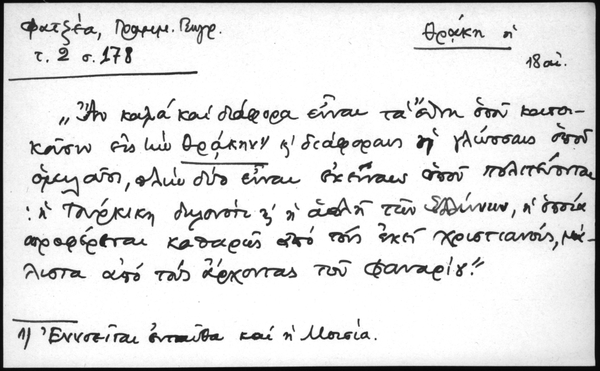 Φατζέα, Γραμμ. Γεωγρ.
τ. 2 σ. 178
Θράκη ἡ
18 αἰ.
„Ἂν καλά καί διάφορα εἶναι τά ἔθνη ὁποῦ κατοι-
κοῦσιν εἰς τήν Θρᾴκην¹⁾ κ' διάφοραις ᾑ γλώσσαις ὁποῦ
ὁμιλοῦσι, πλήν δύο εἶναι ἐκεῖναις ὁποῦ πολιτεύονται
: ἡ Τουρκικη δηλονότι κ' ἡ ἁπλῆ τῶν Ἑλλήνων, ἡ ὁποία
προφέρεται καθαρῶς ἀπό τούς ἐκεῖ χριστιανούς, μά-
λιστα ἀπό τούς ἄρχοντας τοῦ Φαναρίου."
1) Ἐννοεῖται ἐνταῦθα καί ἡ Μοισία.